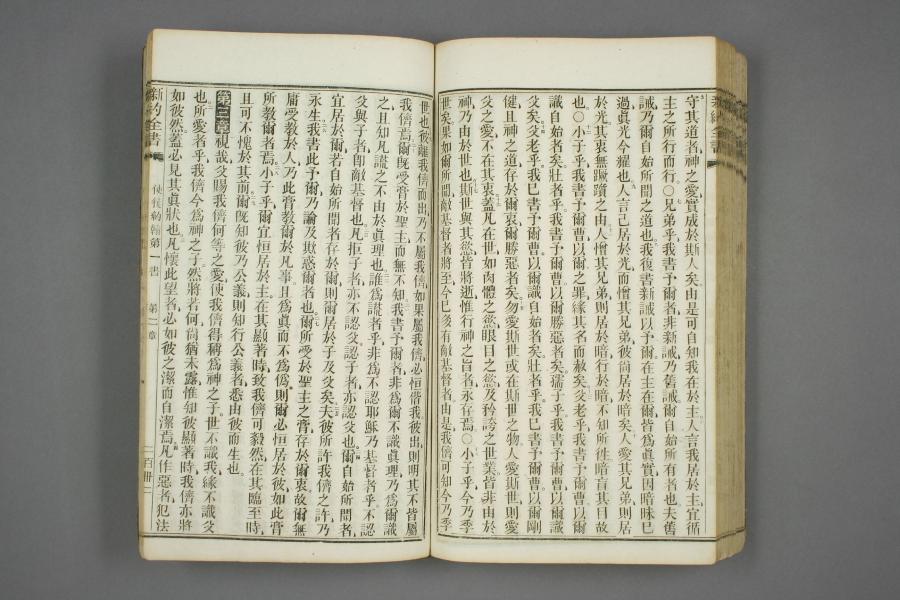 守其道者神之愛實成於斯人矣由是可自知我在於主人言我居於主宜循
主之所行而行○兄弟乎我書予爾者非新誡乃舊誡爾自始所有者也夫舊
誡乃爾自始所聞之道也我復書新誡以予爾在主在爾皆爲眞實因暗昧已
過眞光今耀也人言己居於光而憎其兄弟彼尙居於暗矣人愛其兄弟則居
於光其衷無蹶躓之由人憎其兄弟則居於暗行於暗不知所徃暗盲其目故
也○小子乎我書予爾曹以爾之罪緣其名而赦矣父老乎我書予爾曹以爾
識自始者矣壯者乎我書予爾曹以爾勝惡者矣孺子乎我已書予爾曹以爾識
父矣父老乎我已書予爾曹以爾識自始者矣壯者乎我已書予爾曹以爾剛
健且神之道存於爾衷爾勝惡者矣勿愛斯世或在斯世之物人愛斯世則愛
父之愛不在其衷蓋凡在世如肉體之慾眼目之慾及矜誇之世業皆非由於
神乃由於世也斯世與其慾皆將逝惟行神之旨者永存焉○小子乎今乃季
世矣果如爾所聞敵基督者將至今已多有敵基督者由是我儕可知今乃季
世也彼離我儕而出乃不屬我儕如果屬我儕必恒偕我彼出則明其不皆屬
我儕焉爾旣受膏於聖主而無不知我書予爾者非爲爾不識眞理乃爲爾識
之且知凡謊之不由於眞理也誰爲謊者乎非爲不認耶穌乃基督者乎不認
父與子者卽敵基督也凡拒子者亦不認父認子者亦認父也爾自始所聞者
宜居於爾若自始所聞者存於爾則爾居於子及父矣夫彼所許我儕之許乃
永生我書此予爾乃論及欺惑爾者也爾所受於聖主之膏存於爾衷故爾無
庸受教於人乃此膏教爾於凡事且爲眞而不爲僞則爾必恒居於彼如此膏
所教爾者焉小子乎爾宜恒居於主在其顯著時致我儕可毅然在其臨至時
且可不愧於其前爾旣知彼乃公義則知行公義者悉由彼而生也
第三章視哉父賜我儕何等之愛使我儕得稱爲神之子世不識我緣不識父
也所愛者乎我儕今爲神之子然將若何尙猶未露惟知彼顯著時我儕亦將
如彼然蓋必見其眞狀也凡懷此望者必如彼之潔而自潔焉凡作惡者犯法
新約全書 使徒約翰第一書 第二章